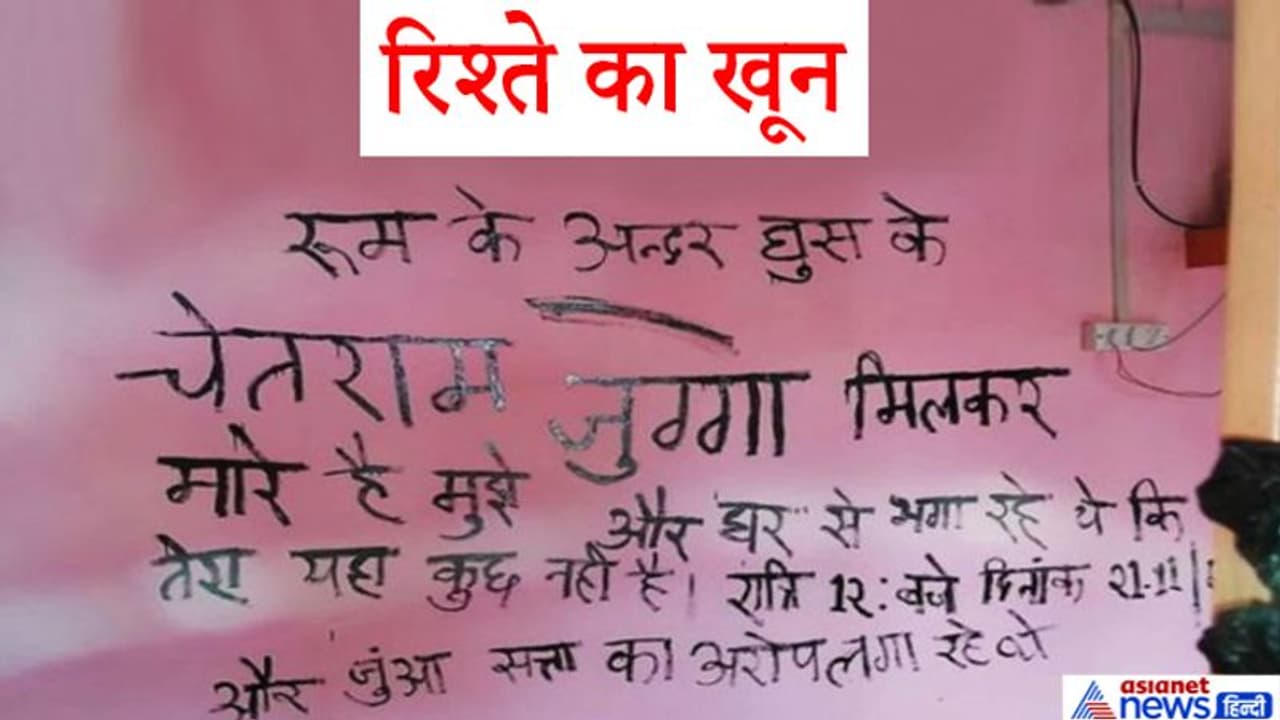 रिश्ते का खून
रूम के अन्दर घुस के
चेतराम जुग्गा मिलकर
मारे है मुझे और घर से भगा रहे थे कि
तेरा यहा कुछ नही है। रात्रि 12:बजे दिनांक 21-11
और जुंआ सत्ता का अरोप लगा रहे थे
asianet
news हिन्दी